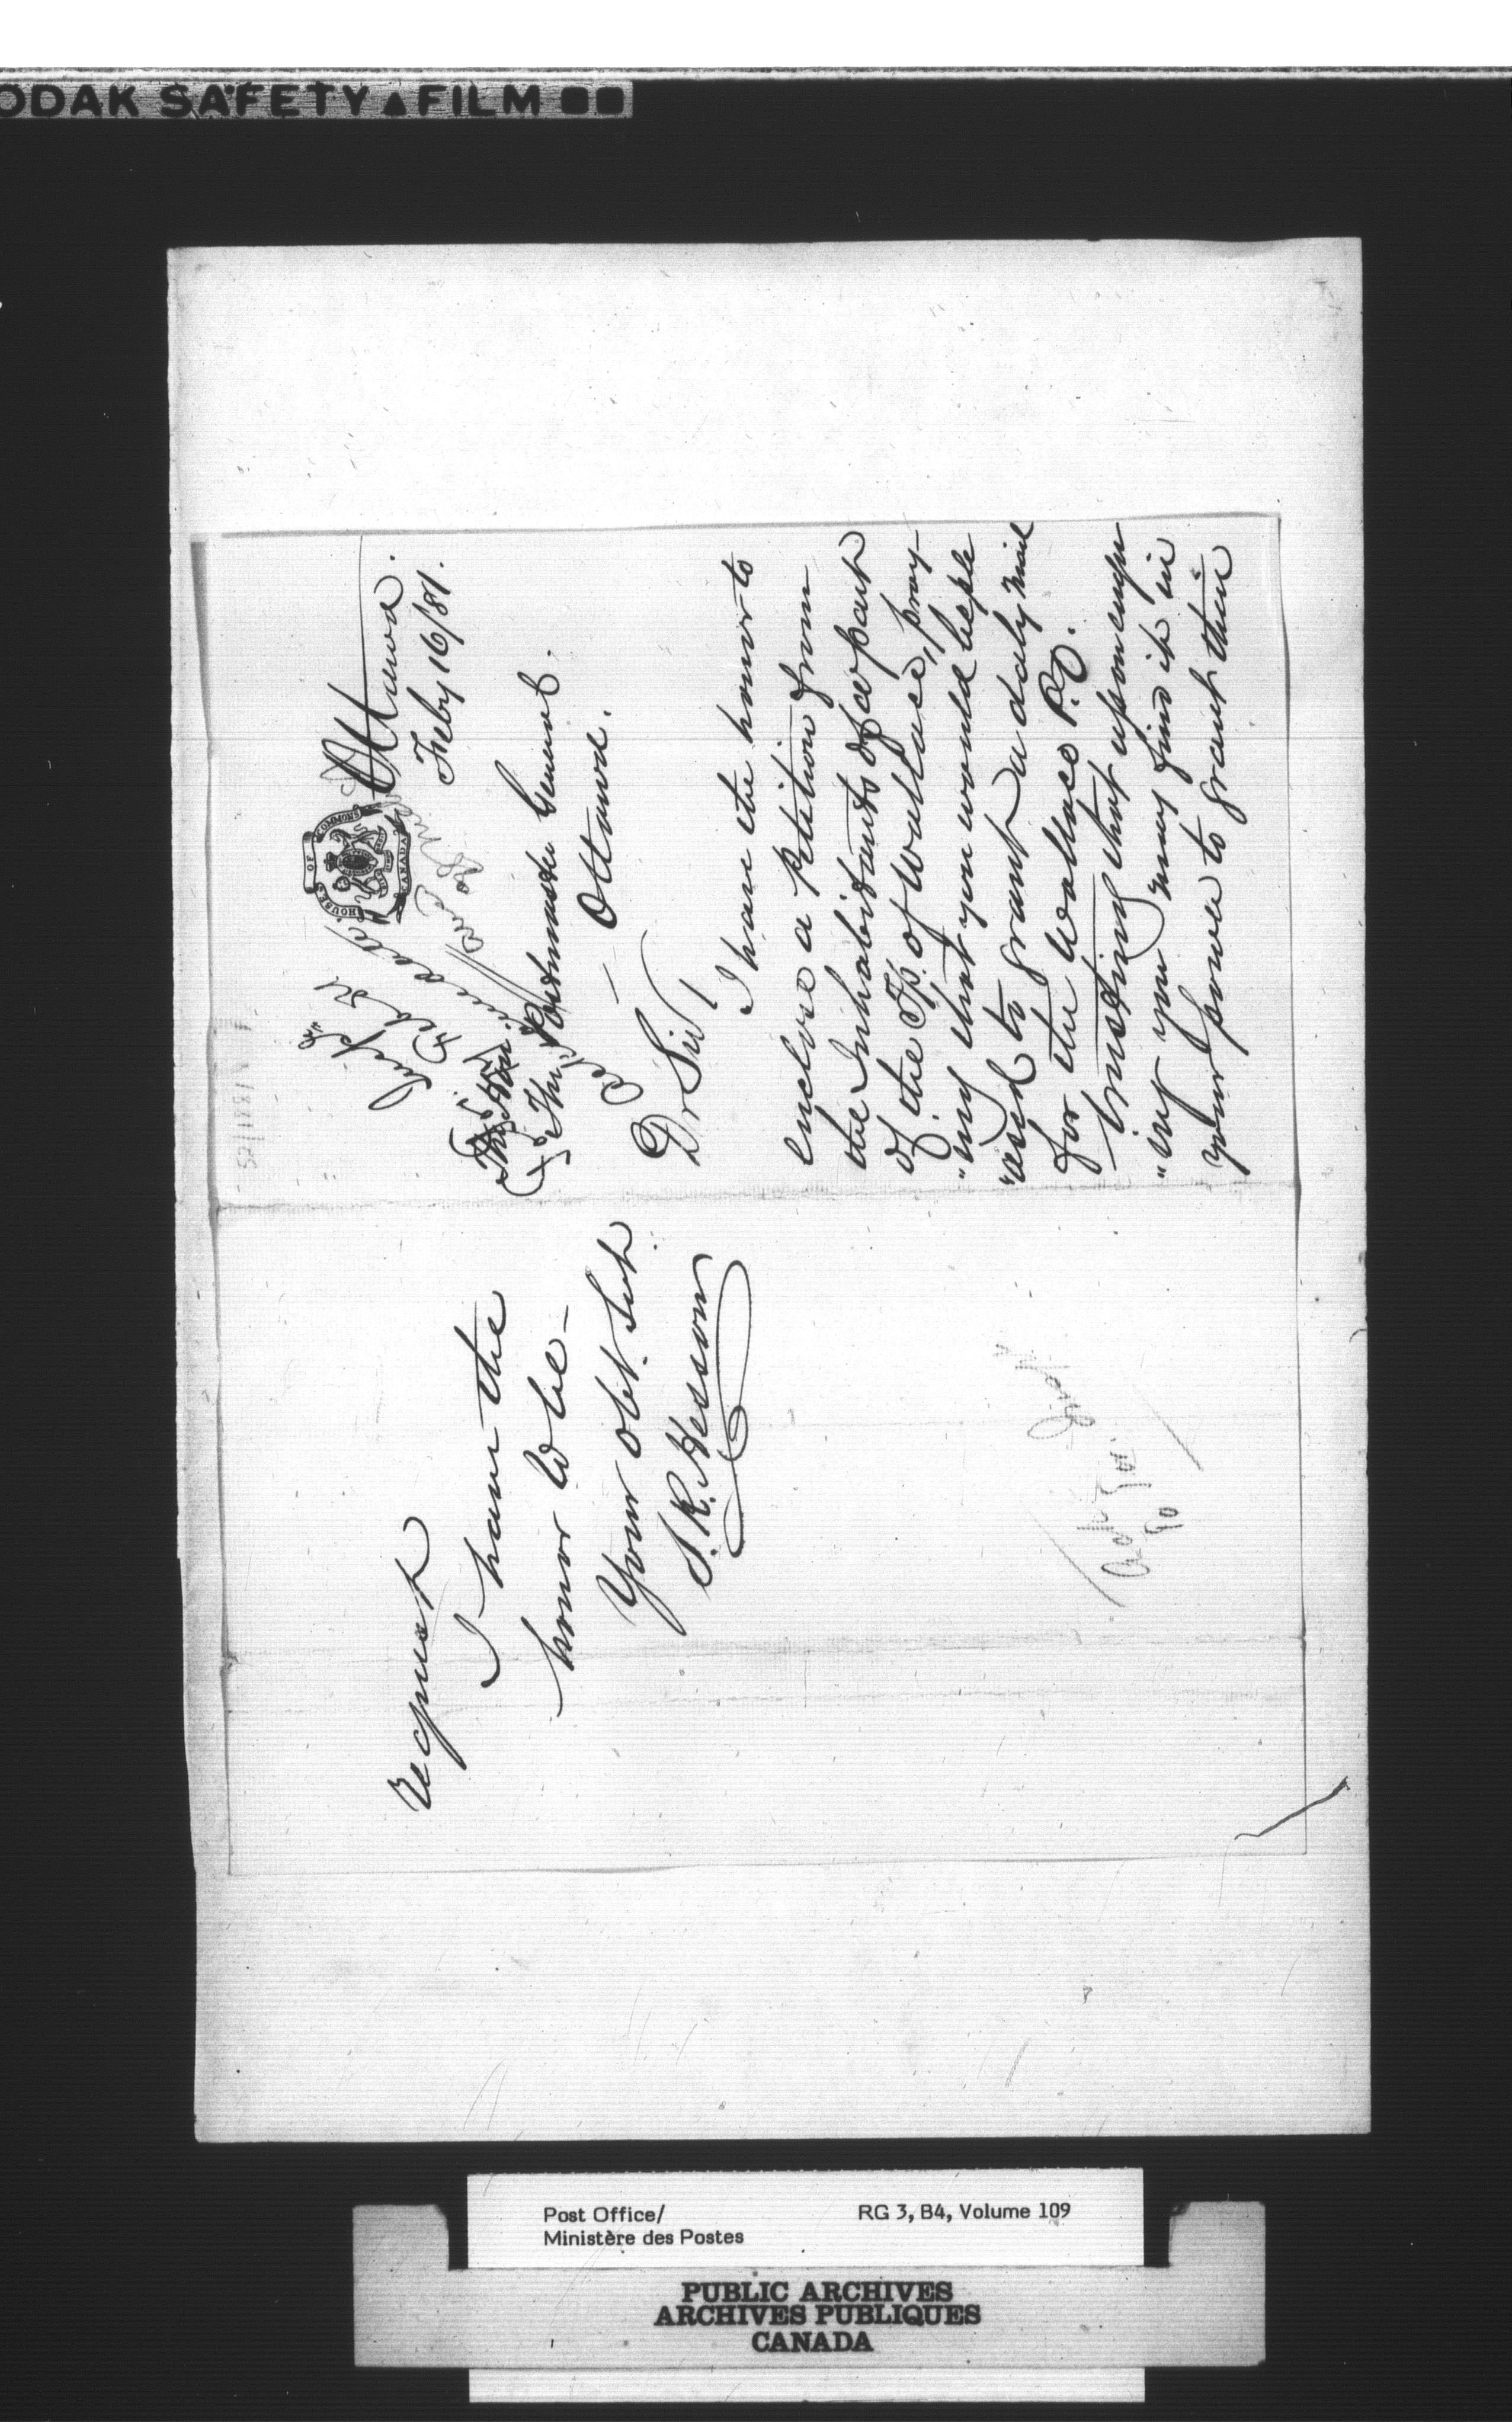 ODAK SAFETY ▲ FILM
HOUSE OF COMMONS
CANADA
Ottawa.
Feby 16/81.
The Hon
The Postmaster General.
Ottawa.
Dr Sir
I have the honor to
enclose a Petition from
the Inhabitants of a part
of the Tp. of Wallace, pray-
"ing that you would be ple
"ased to grant a daily Mail
for the Wallace P.O.
Trusting that upon enqu
"iry you may find it in
your power to grant their
request
I have the
honor to be-
Your obt. Sert.
S. R. Hesson
Post Office/
Ministère des Postes
RG 3, B4, Volume 109
PUBLIC ARCHIVES
ARCHIVES PUBLIQUES
CANADA